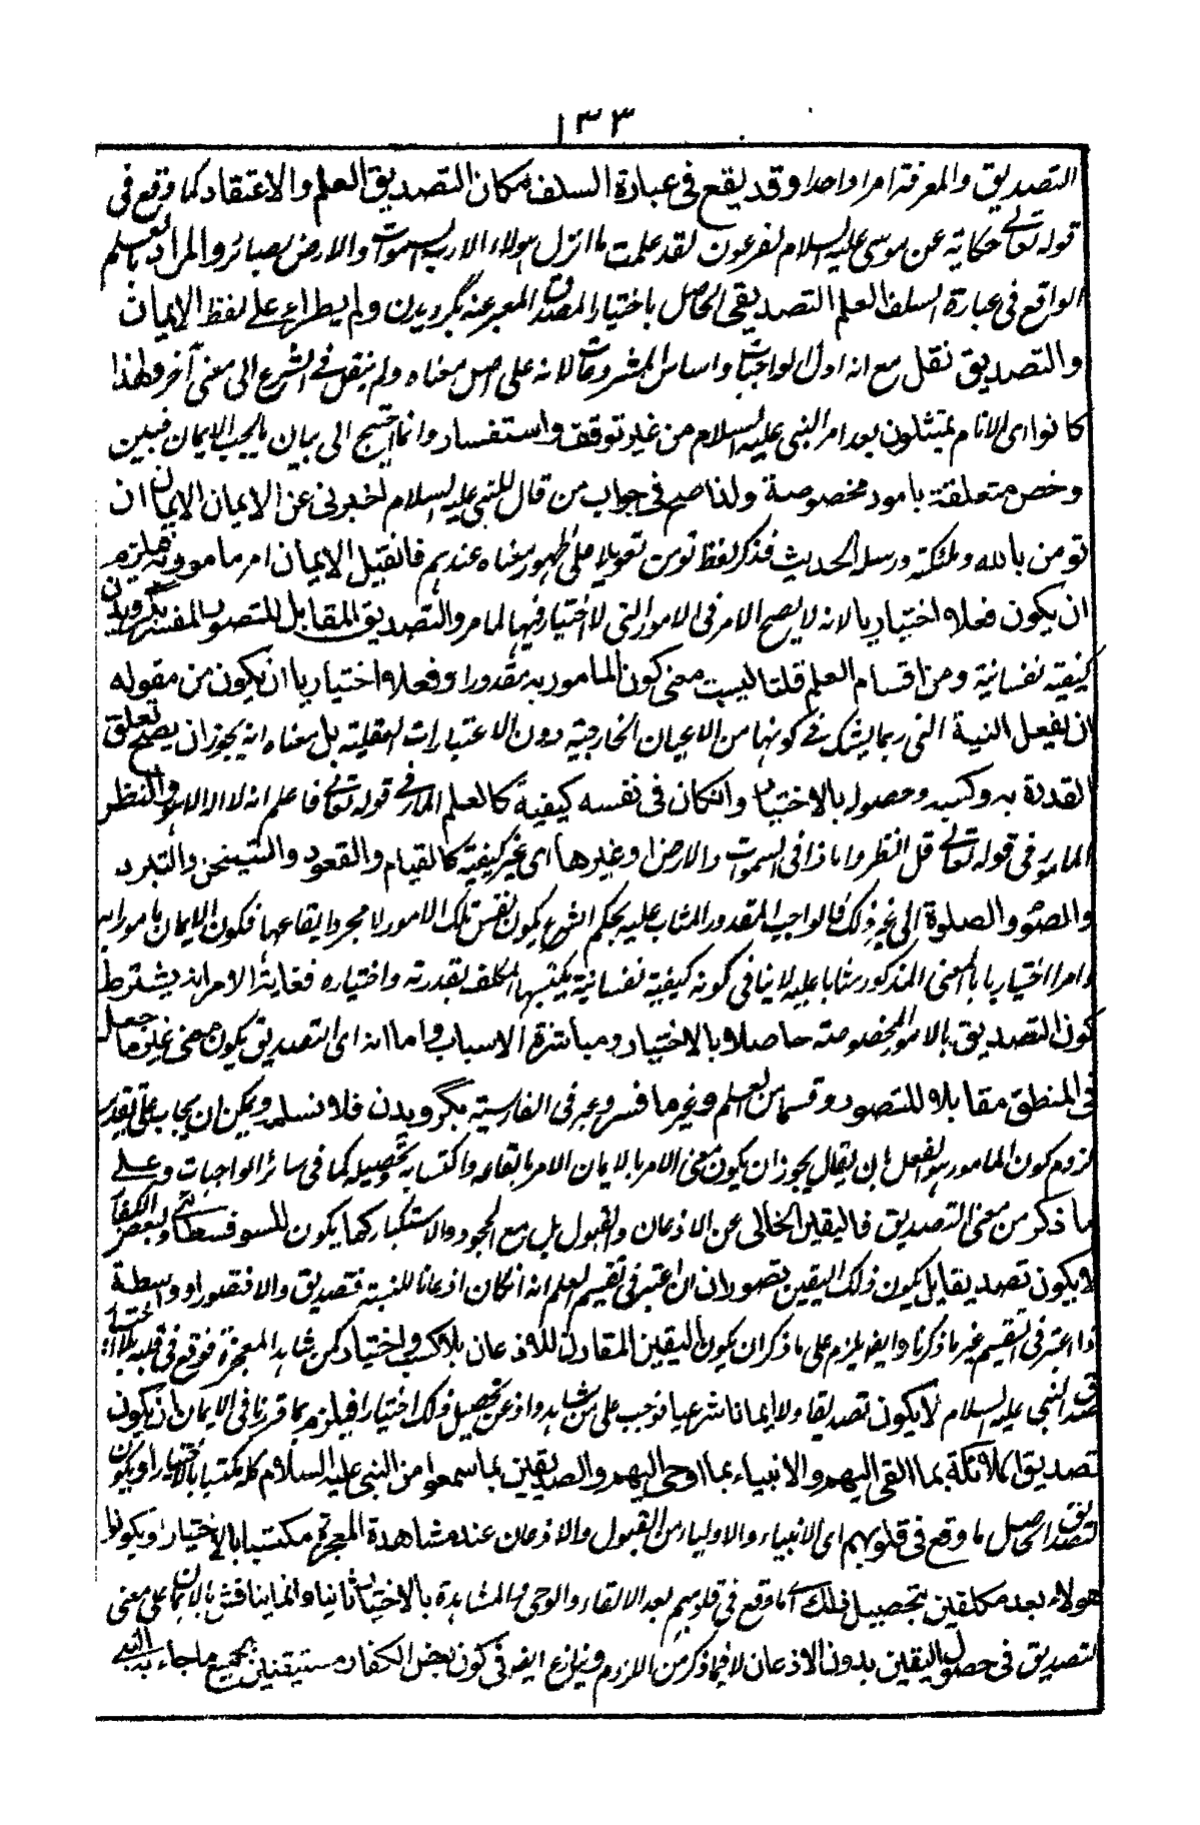 ١٣٣
التصديق والمعرفة امرا واحدا وقد يقع فى عبارة السلف مكان التصديق العلم والاعتقاد كما وقع فى
قوله تعالے حكاية عن موسى عليه السلام لفرعون لقد علمت ما انزل هولاء الا رب السموات والارض بصائر والمراد بالعلم
الواقع فى عبارة السلف العلم التصديقى الحاصل باختيار المصدق المعبر عنه بگرويدن ولم يطراء على لفظ الايمان
والتصديق نقل مع انه اول الواجبات واساس المشروعات لانه على اصل معناه ولم ينقل فے الشرع الى معنى آخر ولهذا
كانوا اى الانام يمتثلون بعد امر النبى عليه السلام من غير توقف واستفسار وانما احتيج الى بيان ما يجب الايمان فبين
وخص متعلقة بامور مخصوصة ولذا صح فى جواب من قال للنبى عليه السلام اخبرنى عن الايمان الايمان ان
تومن بالله وملئكته ورسله الحديث فذكر لفظ تومن تعويلا على ظهور معناه عندهم فانقيل الايمان امر مامور به فيلزم
ان يكون فعلا اختياريا لانه لا يصح الامر فى الامور التى لا اختيار فيها لمامر والتصديق المقابل للتصور المفسر بگرويدن
كيفية نفسانية ومن اقسام العلم قلنا ليست معنى كون المامور به مقدورا وفعلا اختياريا ان يكون من مقوله
ان يفعل النية التى ربما يشك فے كونها من الاعيان الخارجية دون الاعتبارات العقلية بل معناه انه يجوز ان يصح تعلق
القدرة به وكسبه وحصوله بالاختيار وانكان فى نفسه كيفية كالعلم المار فے قوله تعالے فاعلم انه لا اله الا هو والنظر
المامور فى قوله تعالے قل انظروا ماذا فى السموات والارض او غيرها اى غير كيفية كالقيام والقعود والتسخن والتبرد
والصوم والصلوة الى غير ذلك فالواجب المقدور المثاب عليه بحكم الشرع يكون نفس تلك الامور لا مجرد ايقاعها فكون الايمان مامورا به
وامرا اختياريا بالمعنى المذكور مثابا عليه لا ينافى كونه كيفية نفسانية يكتسبها المكلف بقدرته واختياره فغاية الامر انه يشترط
كون التصديق بالامور المخصوصة حاصلا بالاختيار ومباشرة الاسباب واما انه اى التصديق يكون معنى غير ما جعل
فى المنطق مقابلا للتصور وقسما من العلم وغير ما فسر وعبر فى الفارسية بگرويدن فلا نسلمه ويمكن ان يجاب على تقدير
لزوم كون المامور به هو الفعل بان يقال يجوز ان يكون معنى الامر بالايمان الامر بايقاعه واكتسابه وتحصيله كما فى سائر الواجبات وعلے
ما ذكر من معنى التصديق فاليقين الخالى عن الاذعان والقبول بل مع الجحود والاستكبار كما يكون للسوفسطائے ولبعض الكفار
لا يكون تصديقا بل يكون ذلك اليقين تصورا ان اعتبر فى تقسيم العلم انه انكان اذعانا للنسبة فتصديق والا فتصور او واسطة
اذا اعتبر فى التقسيم غير ما ذكرنا وايضا يلزم على ما ذكر ان يكون اليقين المقارن للاذعان بلا كسب واختيار كمن شاهد المعجزة فوقع فى قلبه بلا اختيار
صدق النبى عليه السلام لا يكون تصديقا ولا ايمانا شرعيا فوجب على من شاهد واذعن تحصيل ذلك اختيارا فيلزم مما قررنا فى الايمان ان يكون
تصديق الملائكة بما القى اليهم والانبياء بما اوحى اليهم والصديقين بما سمعوا من النبى عليه السلام كله مكتسبا بالاختيار او يكون
لتصديق الحاصل ما وقع فى قلوبهم اى الانبياء والاولياء من القبول والاذعان عند مشاهدة المعجزة مكتسبا بالاختيار او يكونوا
هولاء بعد مكلفين بتحصيل ذلك اى ما وقع فى قلوبهم بعد الالقاء والوحى والمشاهدة بالاختيار ثانيا وانما يناقش بالايمان على معنى
لتصديق فى حصول اليقين بدون الاذعان لا فيما ذكر من اللزوم وينازع ايضا فى كون بعض الكفار مستيقنين بجميع ما جاء به النبے